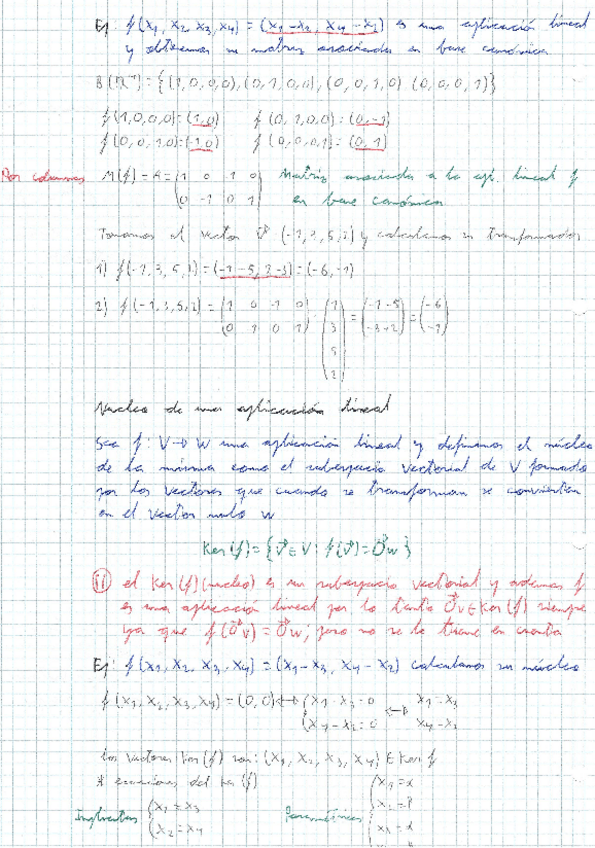 Ej: f(x₁, x₂, x₃, x₄) = (x₁-x₃, x₄-x₂) es una aplicación lineal
y obtenemos su matriz asociada en base canónica
B(ℝ⁴) = {(1,0,0,0), (0,1,0,0), (0,0,1,0) (0,0,0,1)}
f(1,0,0,0) = (1,0) f(0,1,0,0) = (0,-1)
f(0,0,1,0) = (-1,0) f(0,0,0,1) = (0,1)
Por columnas M(f) = A = (1 0 -1 0 Matriz asociada a la apl. lineal f
0 -1 0 1) en base canónica
Tomamos el vector v⃗ (-1,3,5,2) y calculamos su transformado
1) f(-1,3,5,2) = (-1-5, 2-3) = (-6,-1)
2) f(-1,3,5,2) = (1 0 -1 0 / 0 -1 0 1) · (-1 / 3 / 5 / 2) = (-1-5 / -3+2) = (-6 / -1)
Nucleo de una aplicación lineal
Sea f: V→W una aplicación lineal y definimos el núcleo
de la misma como el subespacio vectorial de V formado
por los vectores que cuando se transforman se convierten
en el vector nulo W
Ker(f) = {v⃗ ∈ V : f(v⃗) = 0⃗w}
¡¡ el Ker(f) (nucleo) es un subespacio vectorial y ademas f
es una aplicación lineal por lo tanto 0⃗v ∈ Ker(f) siempre
ya que f(0⃗v) = 0⃗w; pero no se lo tiene en cuenta
Ej: f(x₁, x₂, x₃, x₄) = (x₁-x₃, x₄-x₂) calculamos su núcleo
f(x₁, x₂, x₃, x₄) = (0,0) ↔ {x₁-x₃=0 ↔ x₁=x₃
{x₄-x₂=0 x₄=x₂
Los vectores Ker(f) son: (x₁, x₂, x₃, x₄) ∈ Ker f
* ecuaciones del Ker(f)
Implícitas {x₁=x₃ {x₂=x₄
Paramétricas {x₁=α x₂=β x₃=α